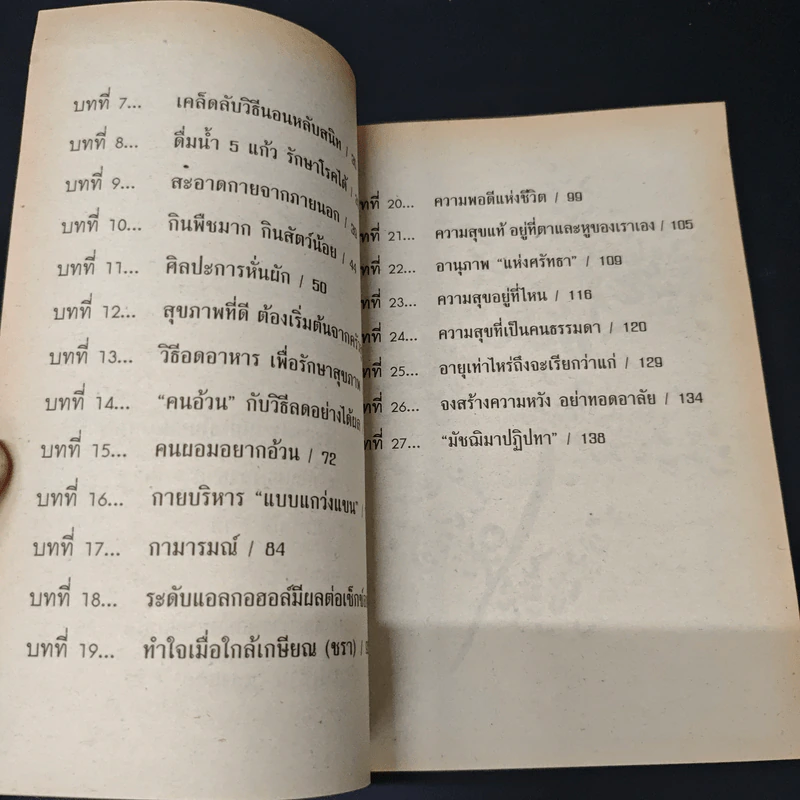 บทที่ 7... เคล็ดลับวิธีนอนหลับสนิท /
บทที่ 8... ดื่มน้ำ 5 แก้ว รักษาโรคได้ /
บทที่ 9... สะอาดกายจากภายนอก /
บทที่ 10... กินพืชมาก กินสัตว์น้อย / 44
บทที่ 11... ศิลปะการหั่นผัก / 50
บทที่ 12... สุขภาพที่ดี ต้องเริ่มต้นจากครัว
บทที่ 13... วิธีอดอาหาร เพื่อรักษาสุขภาพ
บทที่ 14... “คนอ้วน” กับวิธีลดอย่างได้ผล
บทที่ 15... คนผอมอยากอ้วน / 72
บทที่ 16... กายบริหาร “แบบแกว่งแขน” /
บทที่ 17... กามารมณ์ / 84
บทที่ 18... ระดับแอลกอฮอล์มีผลต่อเซ็กซ์
บทที่ 19... ทำใจเมื่อใกล้เกษียณ (ชรา) /
ทที่ 20... ความพอดีแห่งชีวิต / 99
ทที่ 21... ความสุขแท้ อยู่ที่ตาและหูของเราเอง / 105
ทที่ 22... อานุภาพ “แห่งศรัทธา” / 109
ทที่ 23... ความสุขอยู่ที่ไหน / 116
ทที่ 24... ความสุขที่เป็นคนธรรมดา / 120
ทที่ 25... อายุเท่าไหร่ถึงจะเรียกว่าแก่ / 129
ทที่ 26... จงสร้างความหวัง อย่าทอดอาลัย / 134
ทที่ 27... “มัชฌิมาปฏิปทา” / 138